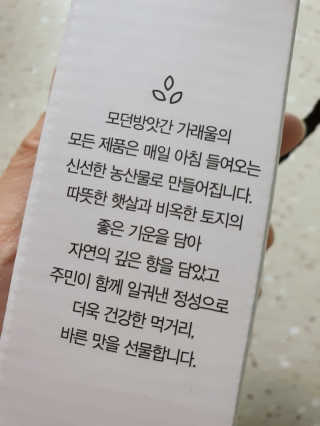 모던방앗간 가래울의
모든 제품은 매일 아침 들여오는
신선한 농산물로 만들어집니다.
따뜻한 햇살과 비옥한 토지의
좋은 기운을 담아
자연의 깊은 향을 담았고
주민이 함께 일궈낸 정성으로
더욱 건강한 먹거리,
바른 맛을 선물합니다.